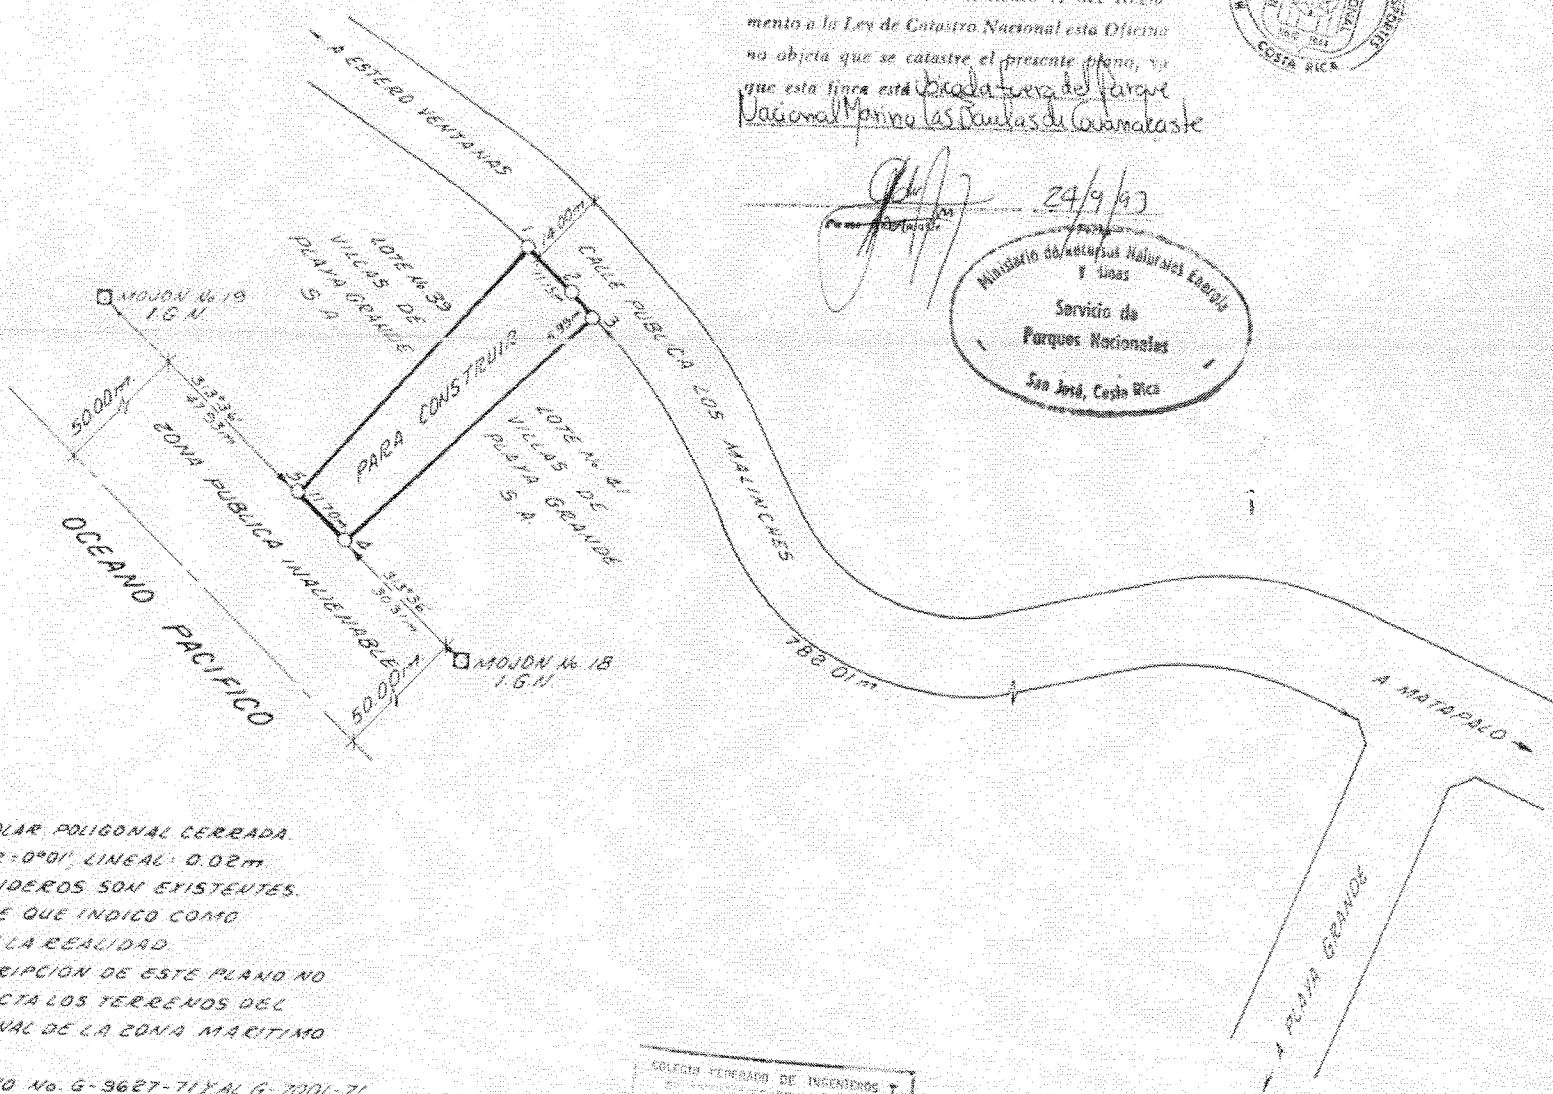 mento a la Ley de Catastro Nacional esta Oficina
no objeta que se catastre el presente plano, ya
que esta finca está ubicada fuera del Parque
Nacional Marino Las Baulas de Guanacaste
24/9/93
COSTA RICA
Ministerio de Recursos Naturales Energía
Y Minas
Servicio de
Parques Nacionales
San José, Costa Rica
A ESTERO VENTANAS
14.00m
CALLE PUBLICA LOS MALINCHES
1
2
3
4
5
11.15m
6.99m
11.70m
LOTE No 39
VILLAS DE
PLAYA GRANDE
S A
PARA CONSTRUIR
LOTE No 41
VILLAS DE
PLAYA GRANDE
S A
MOJON No 19
I.G.N
50.00m
N
313°36'
47.93m
ZONA PUBLICA INALIENABLE
OCEANO PACIFICO
313°36'
30.31m
MOJON No 18
I.G.N
50.00m
782.01m
A MATAPALO
A PLAYA GRANDE
OLAR POLIGONAL CERRADA.
R=0°01', LINEAL: 0.02m
NDEROS SON EXISTENTES.
E QUE INDICO COMO
LA REALIDAD
RIPCION DE ESTE PLANO NO
CTA LOS TERRENOS DEL
NAL DE LA ZONA MARITIMO
No. G-9627-71 Y AL G-2001-71
COLEGIO FEDERADO DE INGENIEROS Y